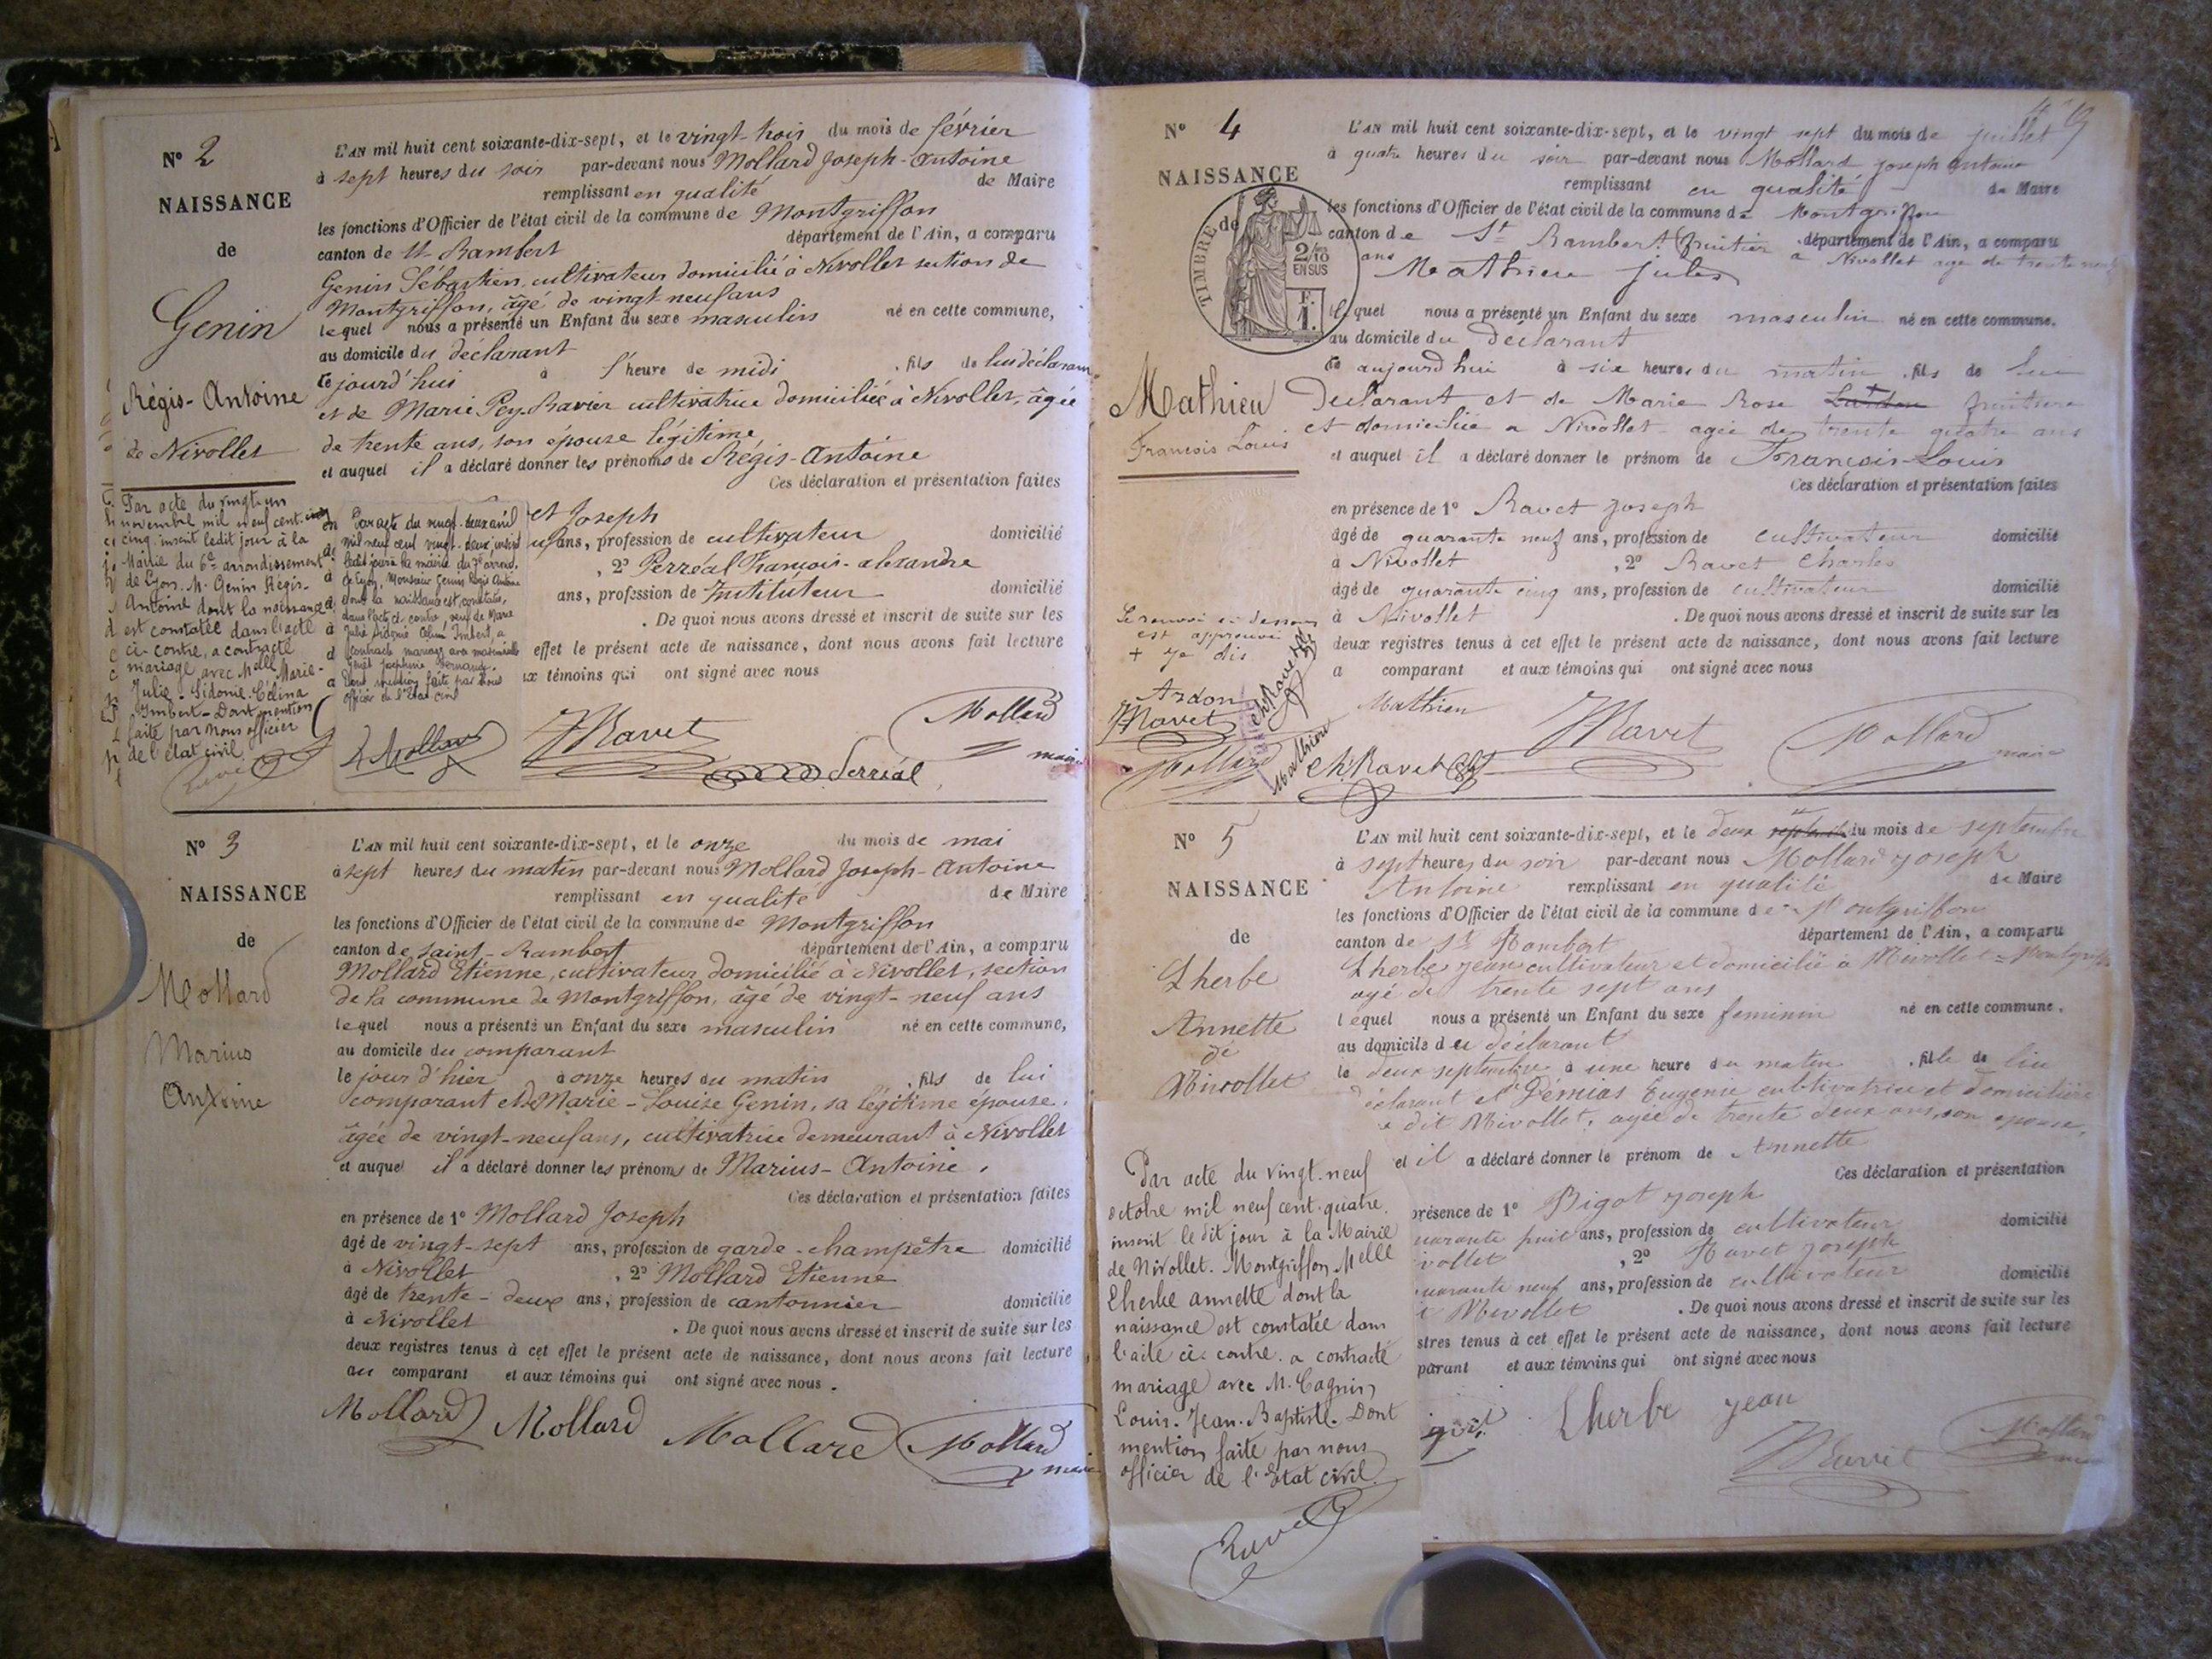 N° 2
NAISSANCE
de
Genin
Régis-Antoine
de Nivollet
L'AN mil huit cent soixante-dix-sept, et le vingt-trois du mois de février
à sept heures du soir par-devant nous Mollard Joseph-Antoine
remplissant en qualité de Maire
les fonctions d'Officier de l'état civil de la commune de Montgriffon
canton de St Rambert département de l'Ain, a comparu
Genin Sébastien, cultivateur domicilié à Nivollet section de
Montgriffon, âgé de vingt-neuf ans
lequel nous a présenté un Enfant du sexe masculin né en cette commune,
au domicile du déclarant
ce jourd'hui à l'heure de midi, fils de lui déclarant
et de Marie Pey-Ravier cultivatrice domiciliée à Nivollet, âgée
de trente ans, son épouse légitime
et auquel il a déclaré donner les prénoms de Régis-Antoine
Ces déclaration et présentation faites
et Joseph
ans, profession de cultivateur domicilié
, 2° Perréal François-alexandre
ans, profession de Instituteur domicilié
. De quoi nous avons dressé et inscrit de suite sur les
effet le présent acte de naissance, dont nous avons fait lecture
ux témoins qui ont signé avec nous
Par acte du vingt-un
novembre mil neuf cent-cinq
cinq inscrit ledit jour à la
Mairie du 6e arrondissement
de Lyon. M. Genin Régis-
Antoine dont la naissance
est constatée dans l'acte
ci-contre, a contracté
mariage avec Melle Marie-
Julie Sidonie-Célina
Imbert - Dont mention
faite par nous officier
de l'état civil.
Par acte du vingt-deux avril
mil neuf cent vingt-deux inscrit
ledit jour à la mairie du 7e arrond.
de Lyon, Monsieur Genin Régis Antoine
dont la naissance est constatée,
dans l'acte ci-contre, veuf de Marie
Julie Sidonie Célina Imbert, a
contracté mariage avec mademoiselle
Joséphine
Dont mention faite par nous
officier de l'Etat civil
Mollard
JRavet
Perréal
Mollard
maire
N° 3
NAISSANCE
de
Mollard
Marius
Antoine
L'AN mil huit cent soixante-dix-sept, et le onze du mois de mai
à sept heures du matin par-devant nous Mollard Joseph-Antoine
remplissant en qualité de Maire
les fonctions d'Officier de l'état civil de la commune de Montgriffon
canton de Saint-Rambert département de l'Ain, a comparu
Mollard Etienne, cultivateur domicilié à Nivollet, section
de la commune de Montgriffon, âgé de vingt-neuf ans
lequel nous a présenté un Enfant du sexe masculin né en cette commune,
au domicile du comparant
le jour d'hier à onze heures du matin, fils de lui
comparant et de Marie-Louise Genin, sa légitime épouse,
âgée de vingt-neuf ans, cultivatrice demeurant à Nivollet
et auquel il a déclaré donner les prénoms de Marius-Antoine,
Ces déclaration et présentation faites
en présence de 1° Mollard Joseph
âgé de vingt-sept ans, profession de garde-champêtre domicilié
à Nivollet, 2° Mollard Etienne
âgé de trente-deux ans, profession de cantonnier domicilié
à Nivollet. De quoi nous avons dressé et inscrit de suite sur les
deux registres tenus à cet effet le présent acte de naissance, dont nous avons fait lecture
au comparant et aux témoins qui ont signé avec nous.
Mollard Mollard Mollard Mollard
maire
N° 4
NAISSANCE
de
TIMBRE
2/10
EN SUS
F.
1.
Mathieu
François Louis
L'AN mil huit cent soixante-dix-sept, et le vingt sept du mois de juillet
à quatre heures du soir par-devant nous Mollard joseph antoine
remplissant en qualité de Maire
les fonctions d'Officier de l'état civil de la commune de Montgriffon
canton de St Rambert département de l'Ain, a comparu
fruitier à Nivollet age de trente neuf
ans Mathieu jules
lequel nous a présenté un Enfant du sexe masculin né en cette commune.
au domicile du déclarant
ce aujourd'hui à six heures du matin, fils de lui
Declarant et de Marie Rose fruitiere
et domiciliée a Nivollet agée de trente quatre ans
et auquel il a déclaré donner le prénom de François-Louis
Ces déclaration et présentation faites
en présence de 1° Ravet joseph
âgé de quarante neuf ans, profession de cultivateur domicilié
à Nivollet, 2° Ravet Charles
âgé de quarante cinq ans, profession de cultivateur domicilié
à Nivollet. De quoi nous avons dressé et inscrit de suite sur les
deux registres tenus à cet effet le présent acte de naissance, dont nous avons fait lecture
a comparant et aux témoins qui ont signé avec nous
Le renvoi ci dessous
est approuvé
+ je dis
Ardon
JRavet
Mollard
Mathieu
ch Ravet
Mathieu
JRavet
Mollard
maire
ch Ravet
N° 5
NAISSANCE
de
Lherbe
Annette
de
Nivollet
L'AN mil huit cent soixante-dix-sept, et le deux du mois de septembre
à sept heures du soir par-devant nous Mollard joseph
Antoine remplissant en qualité de Maire
les fonctions d'Officier de l'état civil de la commune de Montgriffon
canton de St Rambert département de l'Ain, a comparu
Lherbe jean cultivateur et domicilié a Nivollet = Montgriffon
agé de trente sept ans
lequel nous a présenté un Enfant du sexe feminin né en cette commune.
au domicile du déclarant
le deux septembre à une heure du matin, fille de lui
déclarant et Pémias Eugenie cultivatrice et domiciliée
a dit Nivollet, agée de trente deux ans, son epouse,
et il a déclaré donner le prénom de Annette
Ces déclaration et présentation
présence de 1° Bigot joseph
quarante huit ans, profession de cultivateur domicilié
vollet, 2° Ravet joseph
quarante neuf ans, profession de cultivateur domicilié
à Nivollet. De quoi nous avons dressé et inscrit de suite sur les
stres tenus à cet effet le présent acte de naissance, dont nous avons fait lecture
parant et aux témoins qui ont signé avec nous
Par acte du vingt-neuf
octobre mil neuf cent-quatre,
inscrit le dit jour à la Mairie
de Nivollet-Montgriffon, Melle
Lherbe annette dont la
naissance est constatée dans
l'acte ci-contre, a contracté
mariage avec M. Cagnin
Louis-Jean-Baptiste. Dont
mention faite par nous
officier de l'Etat civil.
Lherbe jean
JRavet
Mollard